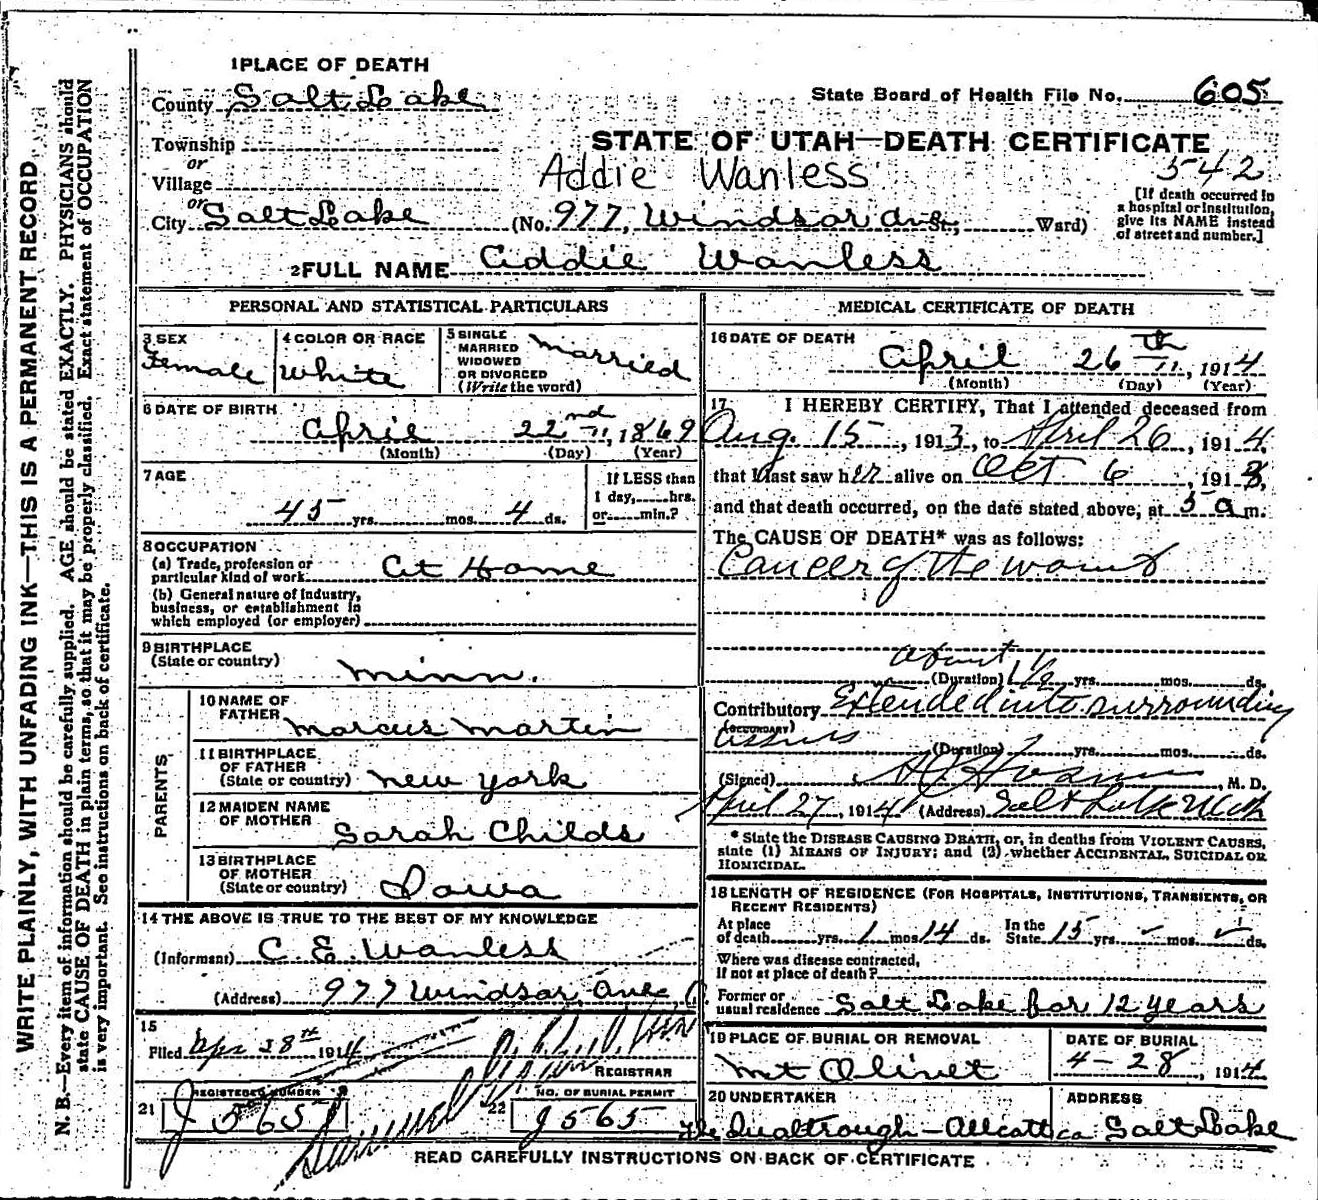 WRITE PLAINLY, WITH UNFADING INK—THIS IS A PERMANENT RECORD
N. B.—Every item of information should be carefully supplied. AGE should be stated EXACTLY. PHYSICIANS should
state CAUSE OF DEATH in plain terms, so that it may be properly classified. Exact statement of OCCUPATION
is very important. See instructions on back of certificate.
1 PLACE OF DEATH
County Salt Lake
State Board of Health File No. 605
Township
or
Village
or
City Salt Lake
STATE OF UTAH—DEATH CERTIFICATE
Addie Wanless 542
(No. 977, Windsor Ave St., Ward)
[If death occurred in
a hospital or institution,
give its NAME instead
of street and number.]
2 FULL NAME Addie Wanless
PERSONAL AND STATISTICAL PARTICULARS
3 SEX
Female
4 COLOR OR RACE
White
5 SINGLE
MARRIED
WIDOWED
OR DIVORCED
(Write the word)
Married
6 DATE OF BIRTH
April 22nd, 1869
(Month) (Day) (Year)
7 AGE
45 yrs. mos. 4 ds.
If LESS than
1 day, hrs.
or min.?
8 OCCUPATION
(a) Trade, profession or
particular kind of work
At Home
(b) General nature of industry,
business, or establishment in
which employed (or employer)
9 BIRTHPLACE
(State or country)
Minn.
PARENTS
10 NAME OF
FATHER
Marcus Martin
11 BIRTHPLACE
OF FATHER
(State or country)
New York
12 MAIDEN NAME
OF MOTHER
Sarah Childs
13 BIRTHPLACE
OF MOTHER
(State or country)
Iowa
14 THE ABOVE IS TRUE TO THE BEST OF MY KNOWLEDGE
(Informant) C. E. Wanless
(Address) 977 Windsor Ave,
15
Filed Apr 28th 1914
REGISTRAR
21
REGISTERED NUMBER
J 565
22
NO. OF BURIAL PERMIT
J565
MEDICAL CERTIFICATE OF DEATH
16 DATE OF DEATH
April 26th, 1914
(Month) (Day) (Year)
17 I HEREBY CERTIFY, That I attended deceased from
Aug. 15, 1913, to April 26, 1914,
that I last saw her alive on Oct 6, 1913,
and that death occurred, on the date stated above, at 5 a m.
The CAUSE OF DEATH* was as follows:
Cancer of the womb
about
(Duration) 1 1/2 yrs. mos. ds.
Contributory Extended into surrounding
(SECONDARY)
tissues
(Duration) ? yrs. mos. ds.
(Signed) M. D.
April 27, 1914 (Address) Salt Lake Utah
* State the DISEASE CAUSING DEATH, or, in deaths from VIOLENT CAUSES,
state (1) MEANS OF INJURY; and (2) whether ACCIDENTAL, SUICIDAL OR
HOMICIDAL.
18 LENGTH OF RESIDENCE (FOR HOSPITALS, INSTITUTIONS, TRANSIENTS, OR
RECENT RESIDENTS)
At place
of death yrs. 1 mos. 14 ds.
In the
State 15 yrs. mos. ds.
Where was disease contracted,
if not at place of death?
Former or
usual residence Salt Lake for 12 years
19 PLACE OF BURIAL OR REMOVAL
Mt Olivet
DATE OF BURIAL
4-28, 1914
20 UNDERTAKER
ADDRESS
Salt Lake
READ CAREFULLY INSTRUCTIONS ON BACK OF CERTIFICATE